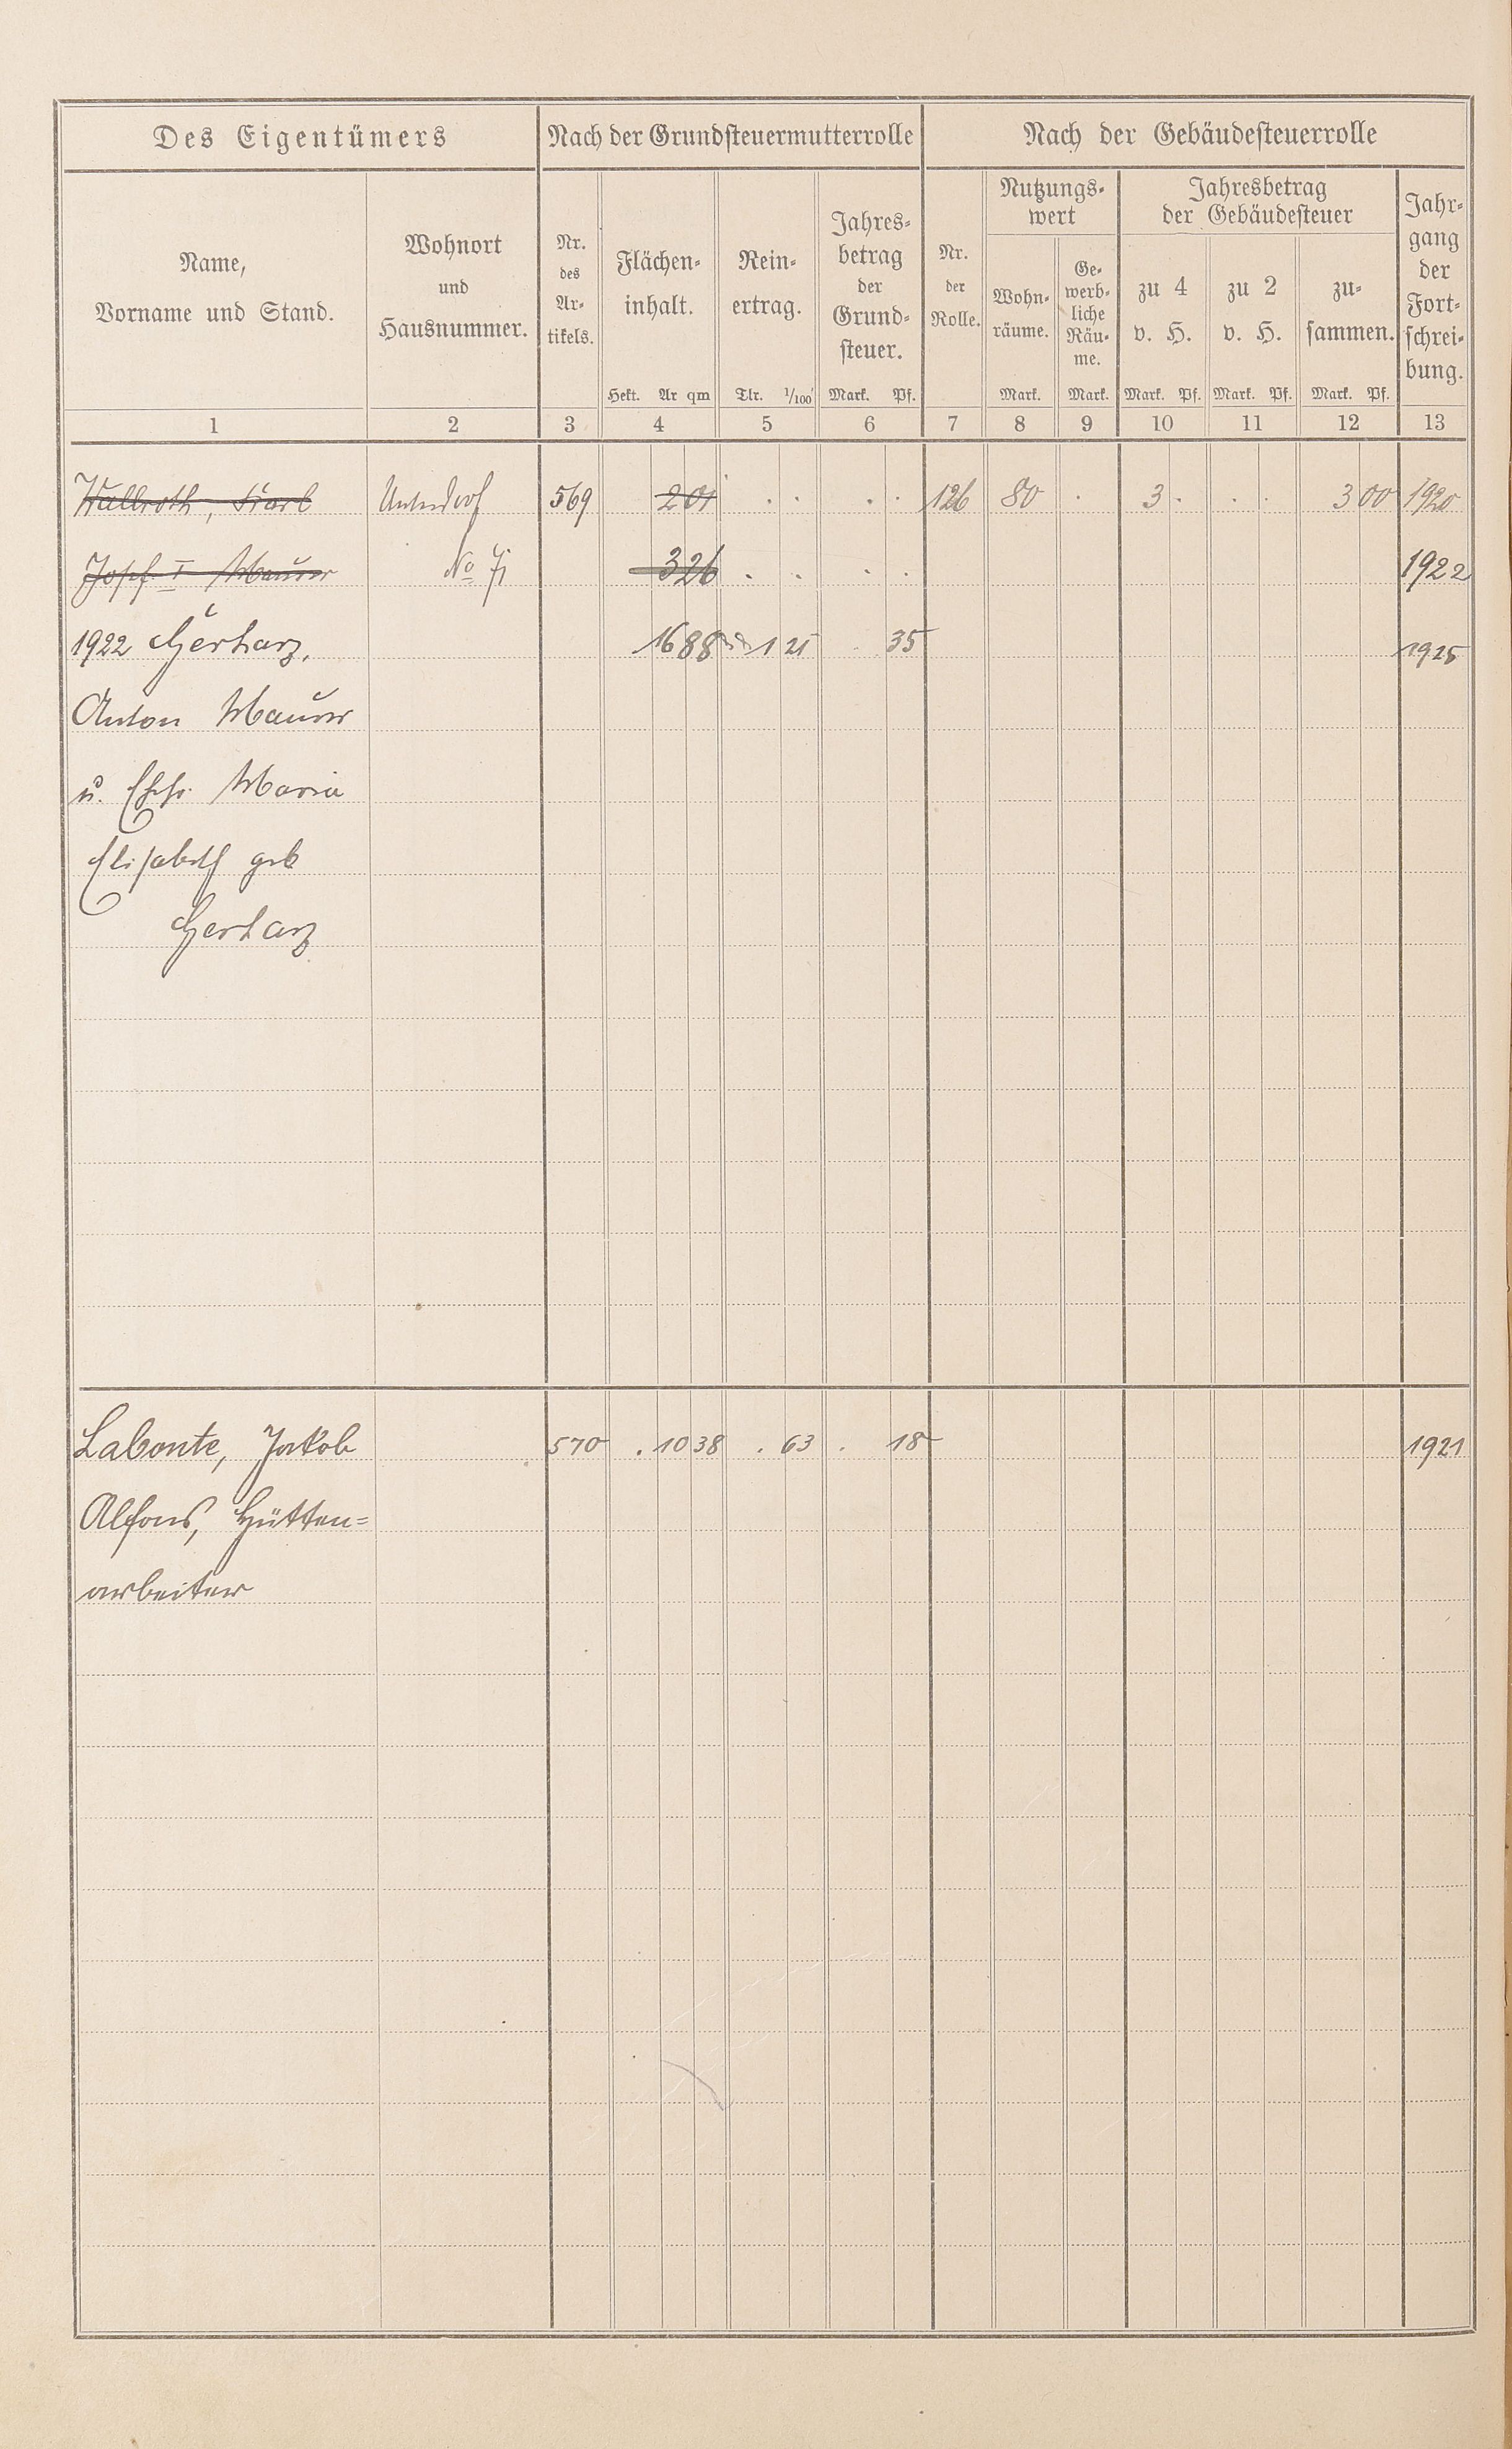 Des Eigentümers
Nach der Grundsteuermutterrolle
Nach der Gebäudesteuerrolle
Name,
Vorname und Stand.
Wohnort
und
Hausnummer.
Nr.
des
Ar-
tikels.
Flächen-
inhalt.
Hekt. Ar qm
Rein-
ertrag.
Tlr. 1/100
Jahres-
betrag
der
Grund-
steuer.
Mark. Pf.
Nr.
der
Rolle.
Nutzungs-
wert
Wohn-
räume.
Mark.
Ge-
werb-
liche
Räu-
me.
Mark.
Jahresbetrag
der Gebäudesteuer
zu 4
v. H.
Mark. Pf.
zu 2
v. H.
Mark. Pf.
zu-
sammen.
Mark. Pf.
Jahr-
gang
der
Fort-
schrei-
bung.
1 2 3 4 5 6 7 8 9 10 11 12 13
Wallroth, Karl Unterdorf 569 2 01 . . . . 126 80 . 3 . . . 3 00 1920
Josef I Maurer No 3 26 . . . . 1922
1922 Gerharz, 16 88 1 21 . 35 1925
Anton Maurer
u. Ehfr. Maria
Elisabeth geb
Gerharz
Labonte, Jakob 570 . 10 38 . 63 . 18 1921
Alfons, Hütten=
arbeiter